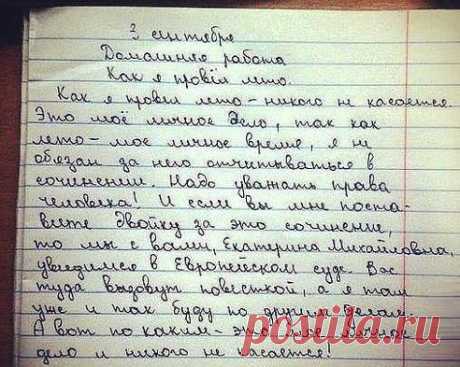 3 сентября
Домашняя работа
Как я провёл лето.
Как я провёл лето – никого не касается.
Это моё личное дело, так как
лето – моё личное время, я не
обязан за него отчитываться в
сочинении. Надо уважать права
человека! И если вы мне поста-
вите двойку за это сочинение,
то мы с вами, Екатерина Михайловна,
увидимся в Европейском суде. Вас
туда вызовут повесткой, а я там
уже и так буду по другим делам.
А вот по каким – это моё личное
дело и никого не касается!
postila.ru